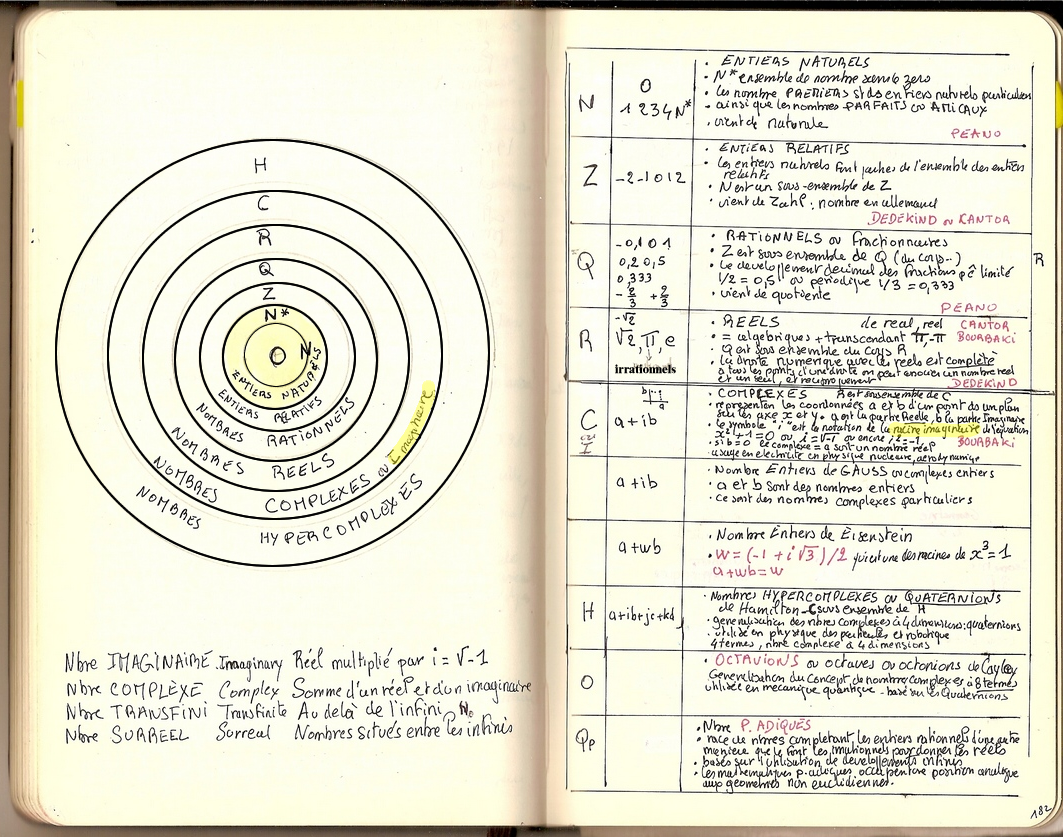 H
C
R
Q
Z
N*
O
N
ENTIERS NATURELS
ENTIERS RELATIFS
NOMBRES RATIONNELS
NOMBRES REELS
NOMBRES COMPLEXES ou Imaginaire
NOMBRES HYPERCOMPLEXES
Nbre IMAGINAIRE Imaginary Réel multiplié par i = √-1
Nbre COMPLEXE Complex Somme d'un réel et d'un imaginaire
Nbre TRANSFINI Transfinite Au delà de l'infini
Nbre SURREEL Surreal Nombres situés entre les infinis
N
0
1 2 3 4 N*
• ENTIERS NATURELS
• N* ensemble de nombre sans le zero
• les nombre PREMIERS st ds entiers naturels particuliers
- ainsi que les nombres PARFAITS ou AMICAUX
• vient de naturale
PEANO
Z
-2-1012
• ENTIERS RELATIFS
• les entiers naturels font parties de l'ensemble des entiers
relatifs
• N est un sous-ensemble de Z
• vient de Zahl : nombre en allemand
DEDEKIND ou CANTOR
Q
-0,1 0 1
0,2 0,5
0,333
-2/3 +2/3
• RATIONNELS ou fractionnaires
• Z est sous ensemble de Q (du corps..)
• le developpement decimal des fractions pê limité
1/2 = 0,5 ou periodique 1/3 = 0,333
• vient de quotiente
PEANO
R
R
-√2
√2, π, e
irrationnels
• REELS de real, reel CANTOR
• = algebriques + transcendant π, -π BOURBAKI
Q est sous ensemble du corps R
• la droite numerique avec les reels est complète
à tous les points d'une droite on peut associer un nombre reel
et un seul, et reciproquement
DEDEKIND
C
a+ib
• COMPLEXES R est sous ensemble de C
• representent les coordonnées a et b d'un point ds un plan
selon les axe x et y. a est la partie Réelle, b la partie Imaginaire
• le symbole "i" est la notation de la racine imaginaire de l'equation
x²+1=0 ou i=√-1 ou encore i²=-1
• si b=0 le complexe = a soit un nombre réel BOURBAKI
- usage en electricité en physique nucleaire, aerodynamique
a+ib
• Nombre Entiers de GAUSS ou complexes entiers
• a et b sont des nombres entiers
• ce sont des nombres complexes particuliers
a+wb
• Nombre Entiers de Eisenstein
• w = (-1 + i√3)/2 qui est une des racines de x³=1
a+wb=w
H
a+ib+jc+kd
• Nombres HYPERCOMPLEXES ou QUATERNIONS
de Hamilton - C sous ensemble de H
• generalisation des nbres complexes à 4 dimensions: quaternions
• utilisé en physique des particules et robotique
4 termes, nbre complexe a 4 dimensions
O
• OCTAVIONS ou octaves ou octonions de Cayley
Generalisation du concept de nombre complexes à 8 termes
utilisée en mecanique quantique. - basé sur les Quaternions
Qp
• Nbre P. ADIQUES
• race de nbres completant les entiers rationnels d'une autre
manière que le font les irrationnels pour donner les réels
• basés sur l'utilisation de developpements infinis
• les mathematiques p. adiques occupent une position analogue
aux geometries non euclidiennes.
182